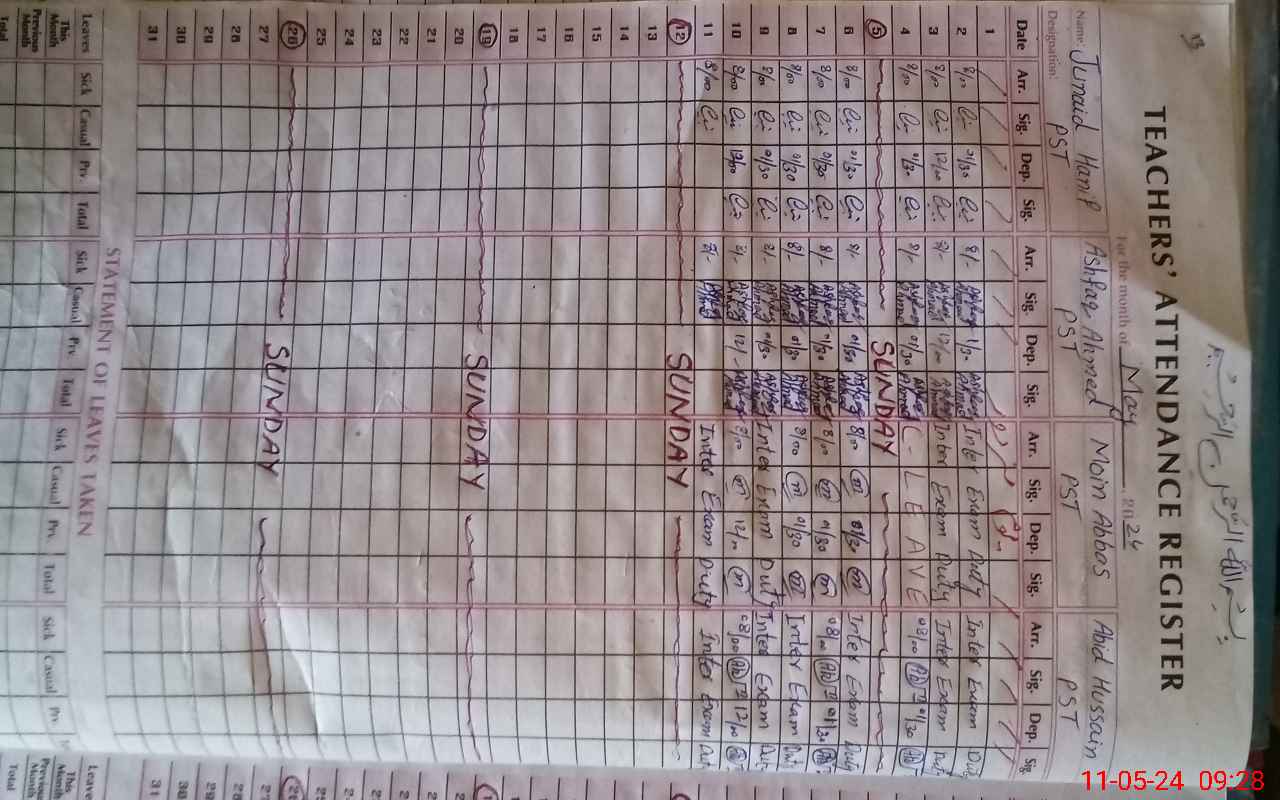 بسم الله الرحمن الرحيم
13
TEACHERS' ATTENDANCE REGISTER
For the month of May, 2024
Name: Junaid Hanif Ashfaq Ahmed Moin Abbas Abid Hussain
Designation: PST PST PST PST
Date Arr. Sig. Dep. Sig. Arr. Sig. Dep. Sig. Arr. Sig. Dep. Sig. Arr. Sig. Dep. Sig.
1
2 8/00 01/30 8/- 1/30 Inter Exam Duty Inter Exam Duty
3 8/00 12/00 8/- 12/00 Inter Exam Duty Inter Exam Duty
4 8/00 01/30 8/- 01/30 C-LEAVE 08/00 01/30
5 SUNDAY
6 8/00 01/30 8/- 01/30 8/00 m 01/30 m Inter Exam Duty
7 8/00 01/30 8/- 01/30 8/00 m 01/30 m 08/00 01/30
8 8/00 01/30 8/- 01/30 8/00 m 01/30 m Inter Exam Duty
9 8/00 01/30 8/- 01/30 Inter Exam Duty Inter Exam Dut
10 8/00 12/00 8/- 12/- 8/00 m 12/00 m 08/00 12/00
11 8/00 Inter Exam Duty Inter Exam Dut
12 SUNDAY
13
14
15
16
17
18
19 SUNDAY
20
21
22
23
24
25
26 SUNDAY
27
28
29
30
31
STATEMENT OF LEAVES TAKEN
Leaves Sick Casual Prv. Total Sick Casual Prv. Total Sick Casual Prv. Total Sick Casual Prv.
This Month
Previous Month
Total
11-05-24 09:28